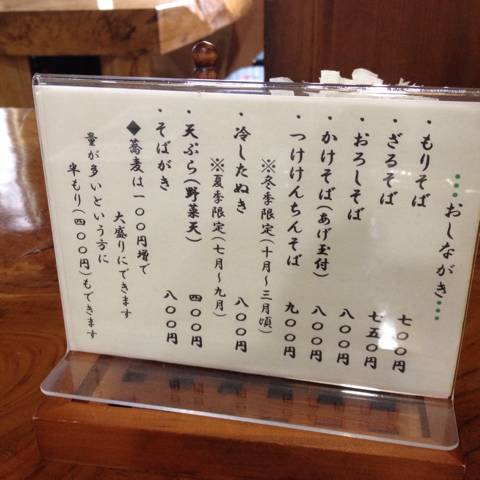 …おしながき…
・もりそば 七〇〇円
・ざるそば 七五〇円
・おろしそば 八〇〇円
・かけそば(あげ玉付) 八〇〇円
・つけけんちんそば 九〇〇円
※冬季限定(十月～三月頃)
・冷したぬき 八〇〇円
※夏季限定(七月～九月)
・天ぷら(野菜天) 四〇〇円
・そばがき 八〇〇円
◆蕎麦は一〇〇円増で
大盛りにできます
量が多いという方に
半もり(四〇〇円)もできます